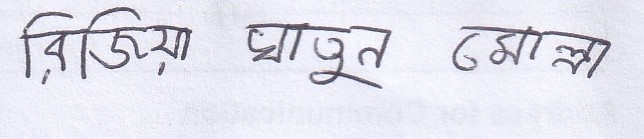 রিজিয়া খাতুন মোল্লা